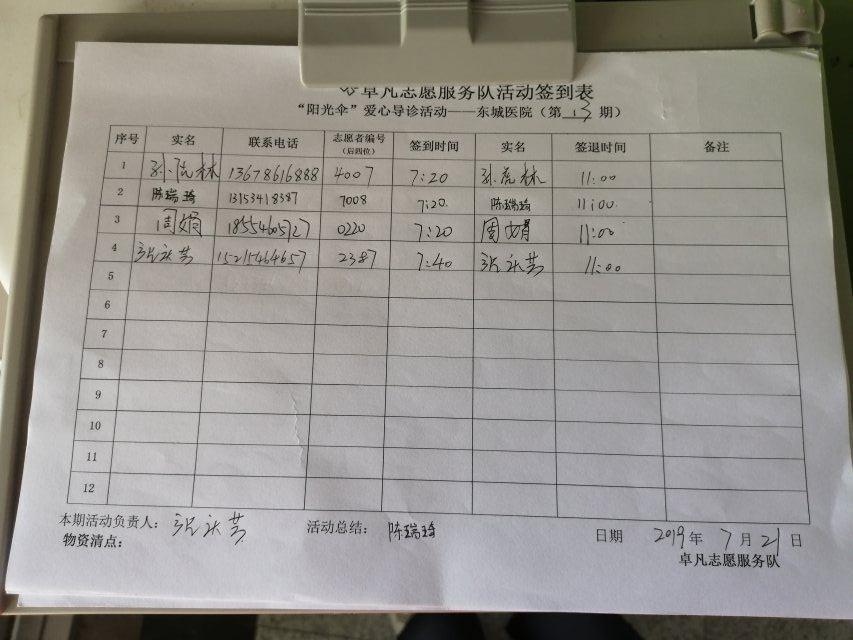 卓凡志愿服务队活动签到表
“阳光伞”爱心导诊活动——东城医院（第 13 期）
序号 实名 联系电话 志愿者编号（后四位） 签到时间 实名 签退时间 备注
1 孙虎林 13678616888 4007 7:20 孙虎林 11:00
2 陈瑞琦 13153418387 7008 7:20 陈瑞琦 11:00
3 周娟 18554605727 0220 7:20 周娟 11:00
4 张永芸 15215464657 2387 7:40 张永芸 11:00
5
6
7
8
9
10
11
12
本期活动负责人：张永芸 活动总结：陈瑞琦 日期 2019年 7月 21日
物资清点： 卓凡志愿服务队